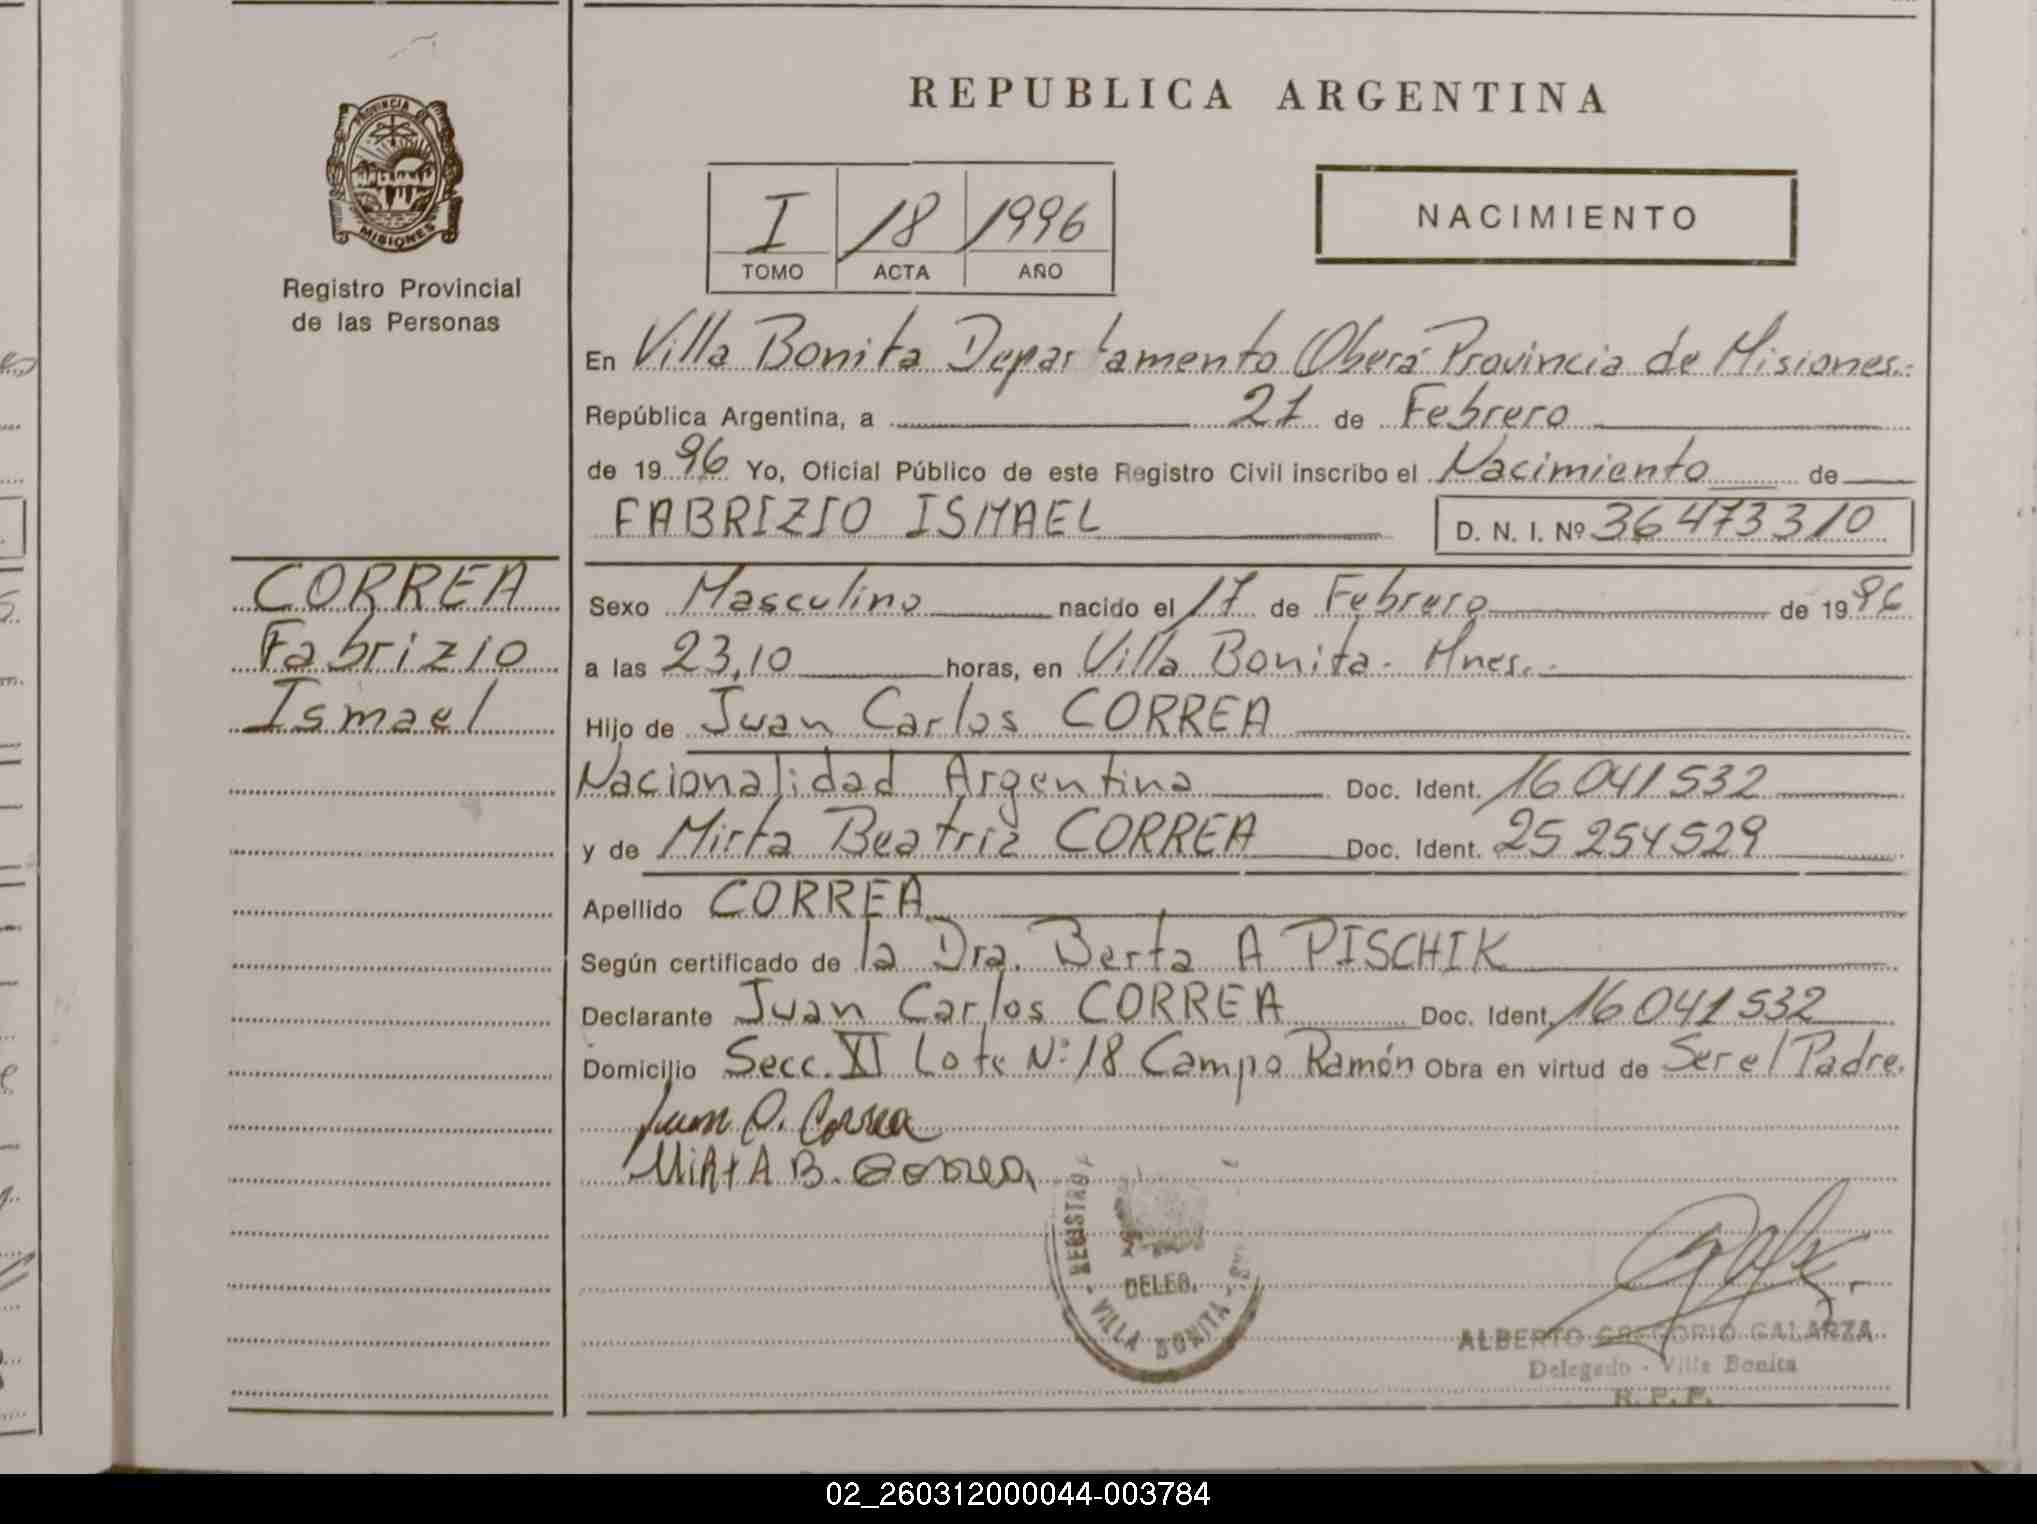 REPUBLICA ARGENTINA
PROVINCIA DE
MISIONES
Registro Provincial
de las Personas
I 18 1996
TOMO ACTA AÑO
NACIMIENTO
En Villa Bonita Departamento Oberá Provincia de Misiones.-
República Argentina, a 21 de Febrero
de 1996 Yo, Oficial Público de este Registro Civil inscribo el Nacimiento de
FABRIZIO ISMAEL D. N. I. Nº 36473310
CORREA
Fabrizio
Ismael
Sexo Masculino nacido el 17 de Febrero de 1996
a las 23,10 horas, en Villa Bonita - Mnes.-
Hijo de Juan Carlos CORREA
Nacionalidad Argentina Doc. Ident. 16041532
y de Mirta Beatriz CORREA Doc. Ident. 25254529
Apellido CORREA
Según certificado de la Dra. Berta A PISCHIK
Declarante Juan Carlos CORREA Doc. Ident. 16041532
Domicilio Secc. XI Lote Nº 18 Campo Ramón Obra en virtud de Ser el Padre.
Juan C. Correa
MirtA B. Correa
REGISTRO
DELEG.
VILLA BONITA
ALBERTO GREGORIO GALARZA
Delegado - Villa Bonita
R. P. P.
02_260312000044-003784